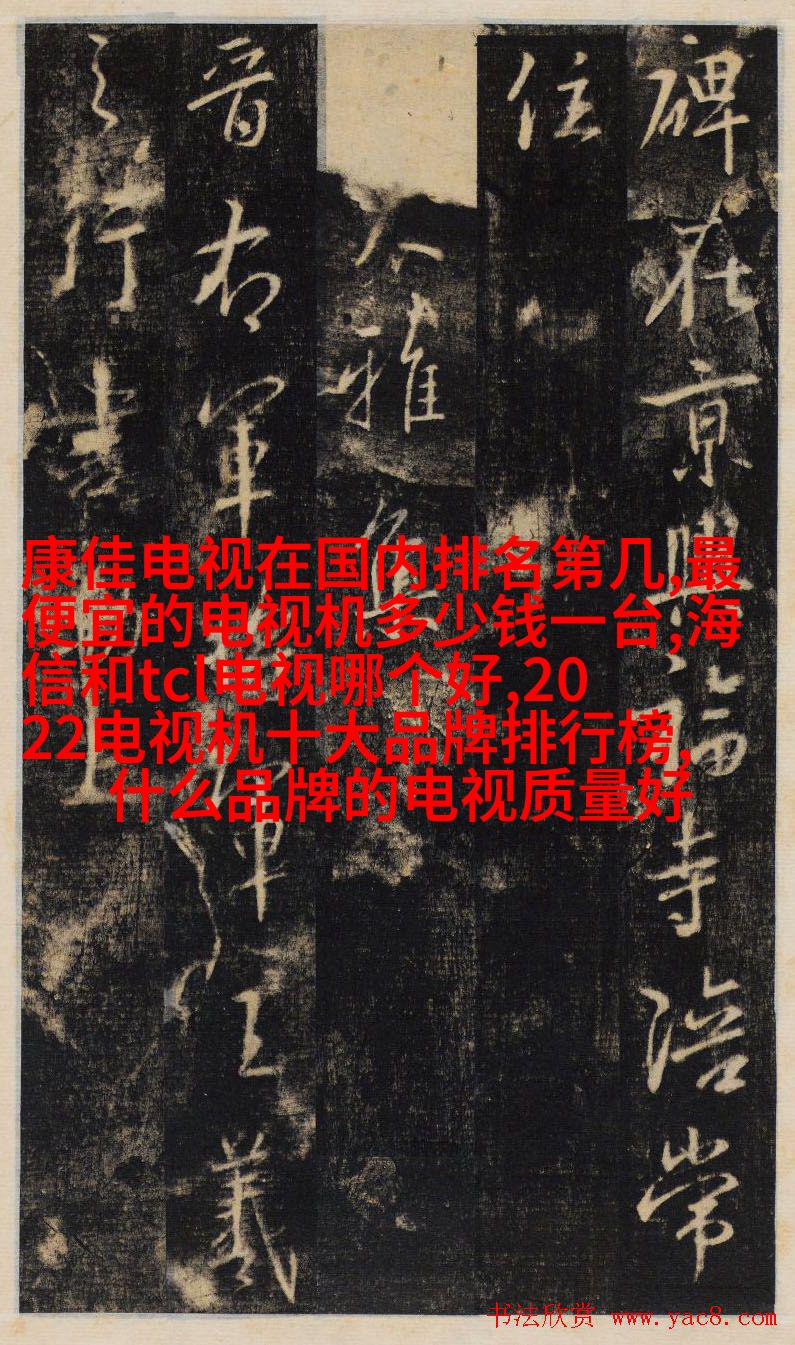 碑在京興福寺陪常
住
大雅集
晉右軍軍王羲
之行書上
康佳电视在国内排名第几,最
便宜的电视机多少钱一台,海
信和tcl电视哪个好,20
22电视机十大品牌排行榜,
什么品牌的电视质量好
书法欣赏 www.yac8.com